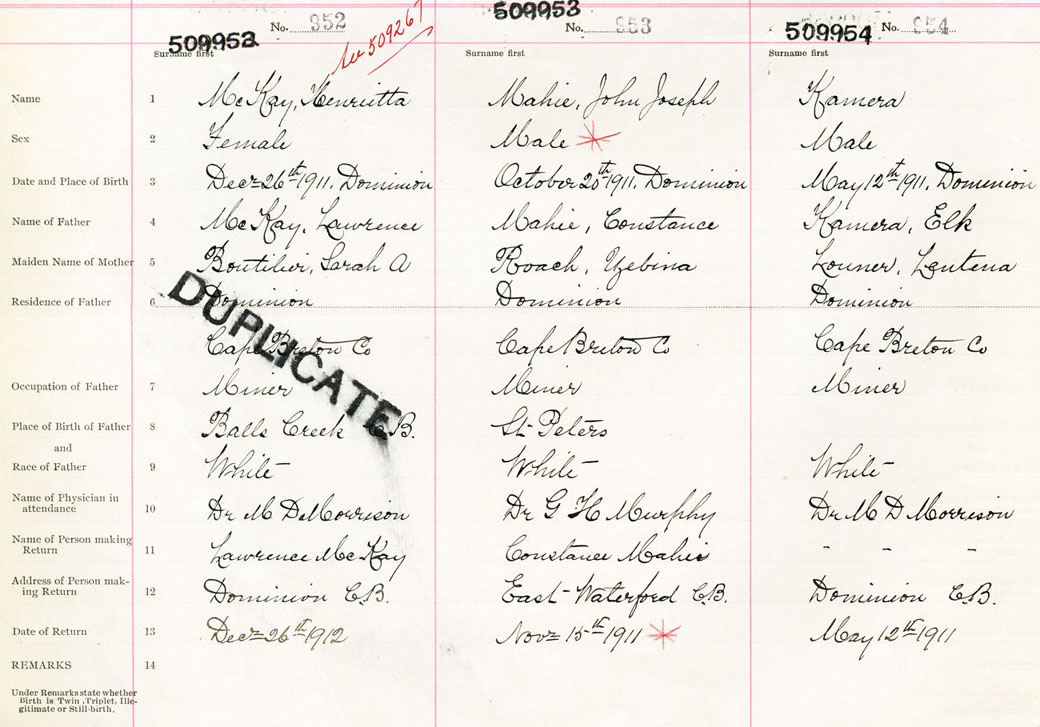 No. 952 509953 No. 953 509954 No. 954
509952 See 509267
Surname first Surname first Surname first
Name 1 McKay, Henrietta Mahie, John Joseph Kamera
Sex 2 Female Male Male
Date and Place of Birth 3 Decr 26th 1911. Dominion October 20th 1911. Dominion May 12th 1911. Dominion
Name of Father 4 McKay, Lawrence Mahie, Constance Kamera, Elk
Maiden Name of Mother 5 Boutilier, Sarah A Roach, Uzebina Louner, Lentena
Residence of Father 6 Dominion Dominion Dominion
DUPLICATE
Cape Breton Co Cape Breton Co Cape Breton Co
Occupation of Father 7 Miner Miner Miner
Place of Birth of Father 8 Balls Creek C.B. St Peters
and
Race of Father 9 White White White
Name of Physician in
attendance 10 Dr M D Morrison Dr G H Murphy Dr M D Morrison
Name of Person making
Return 11 Lawrence McKay Constance Mahie - - -
Address of Person mak-
ing Return 12 Dominion C.B. East Waterford C.B. Dominion C.B.
Date of Return 13 Decr 26th 1912 Novr 15th 1911 May 12th 1911
REMARKS 14
Under Remarks state whether
Birth is Twin, Triplet, Ille-
gitimate or Still-birth.